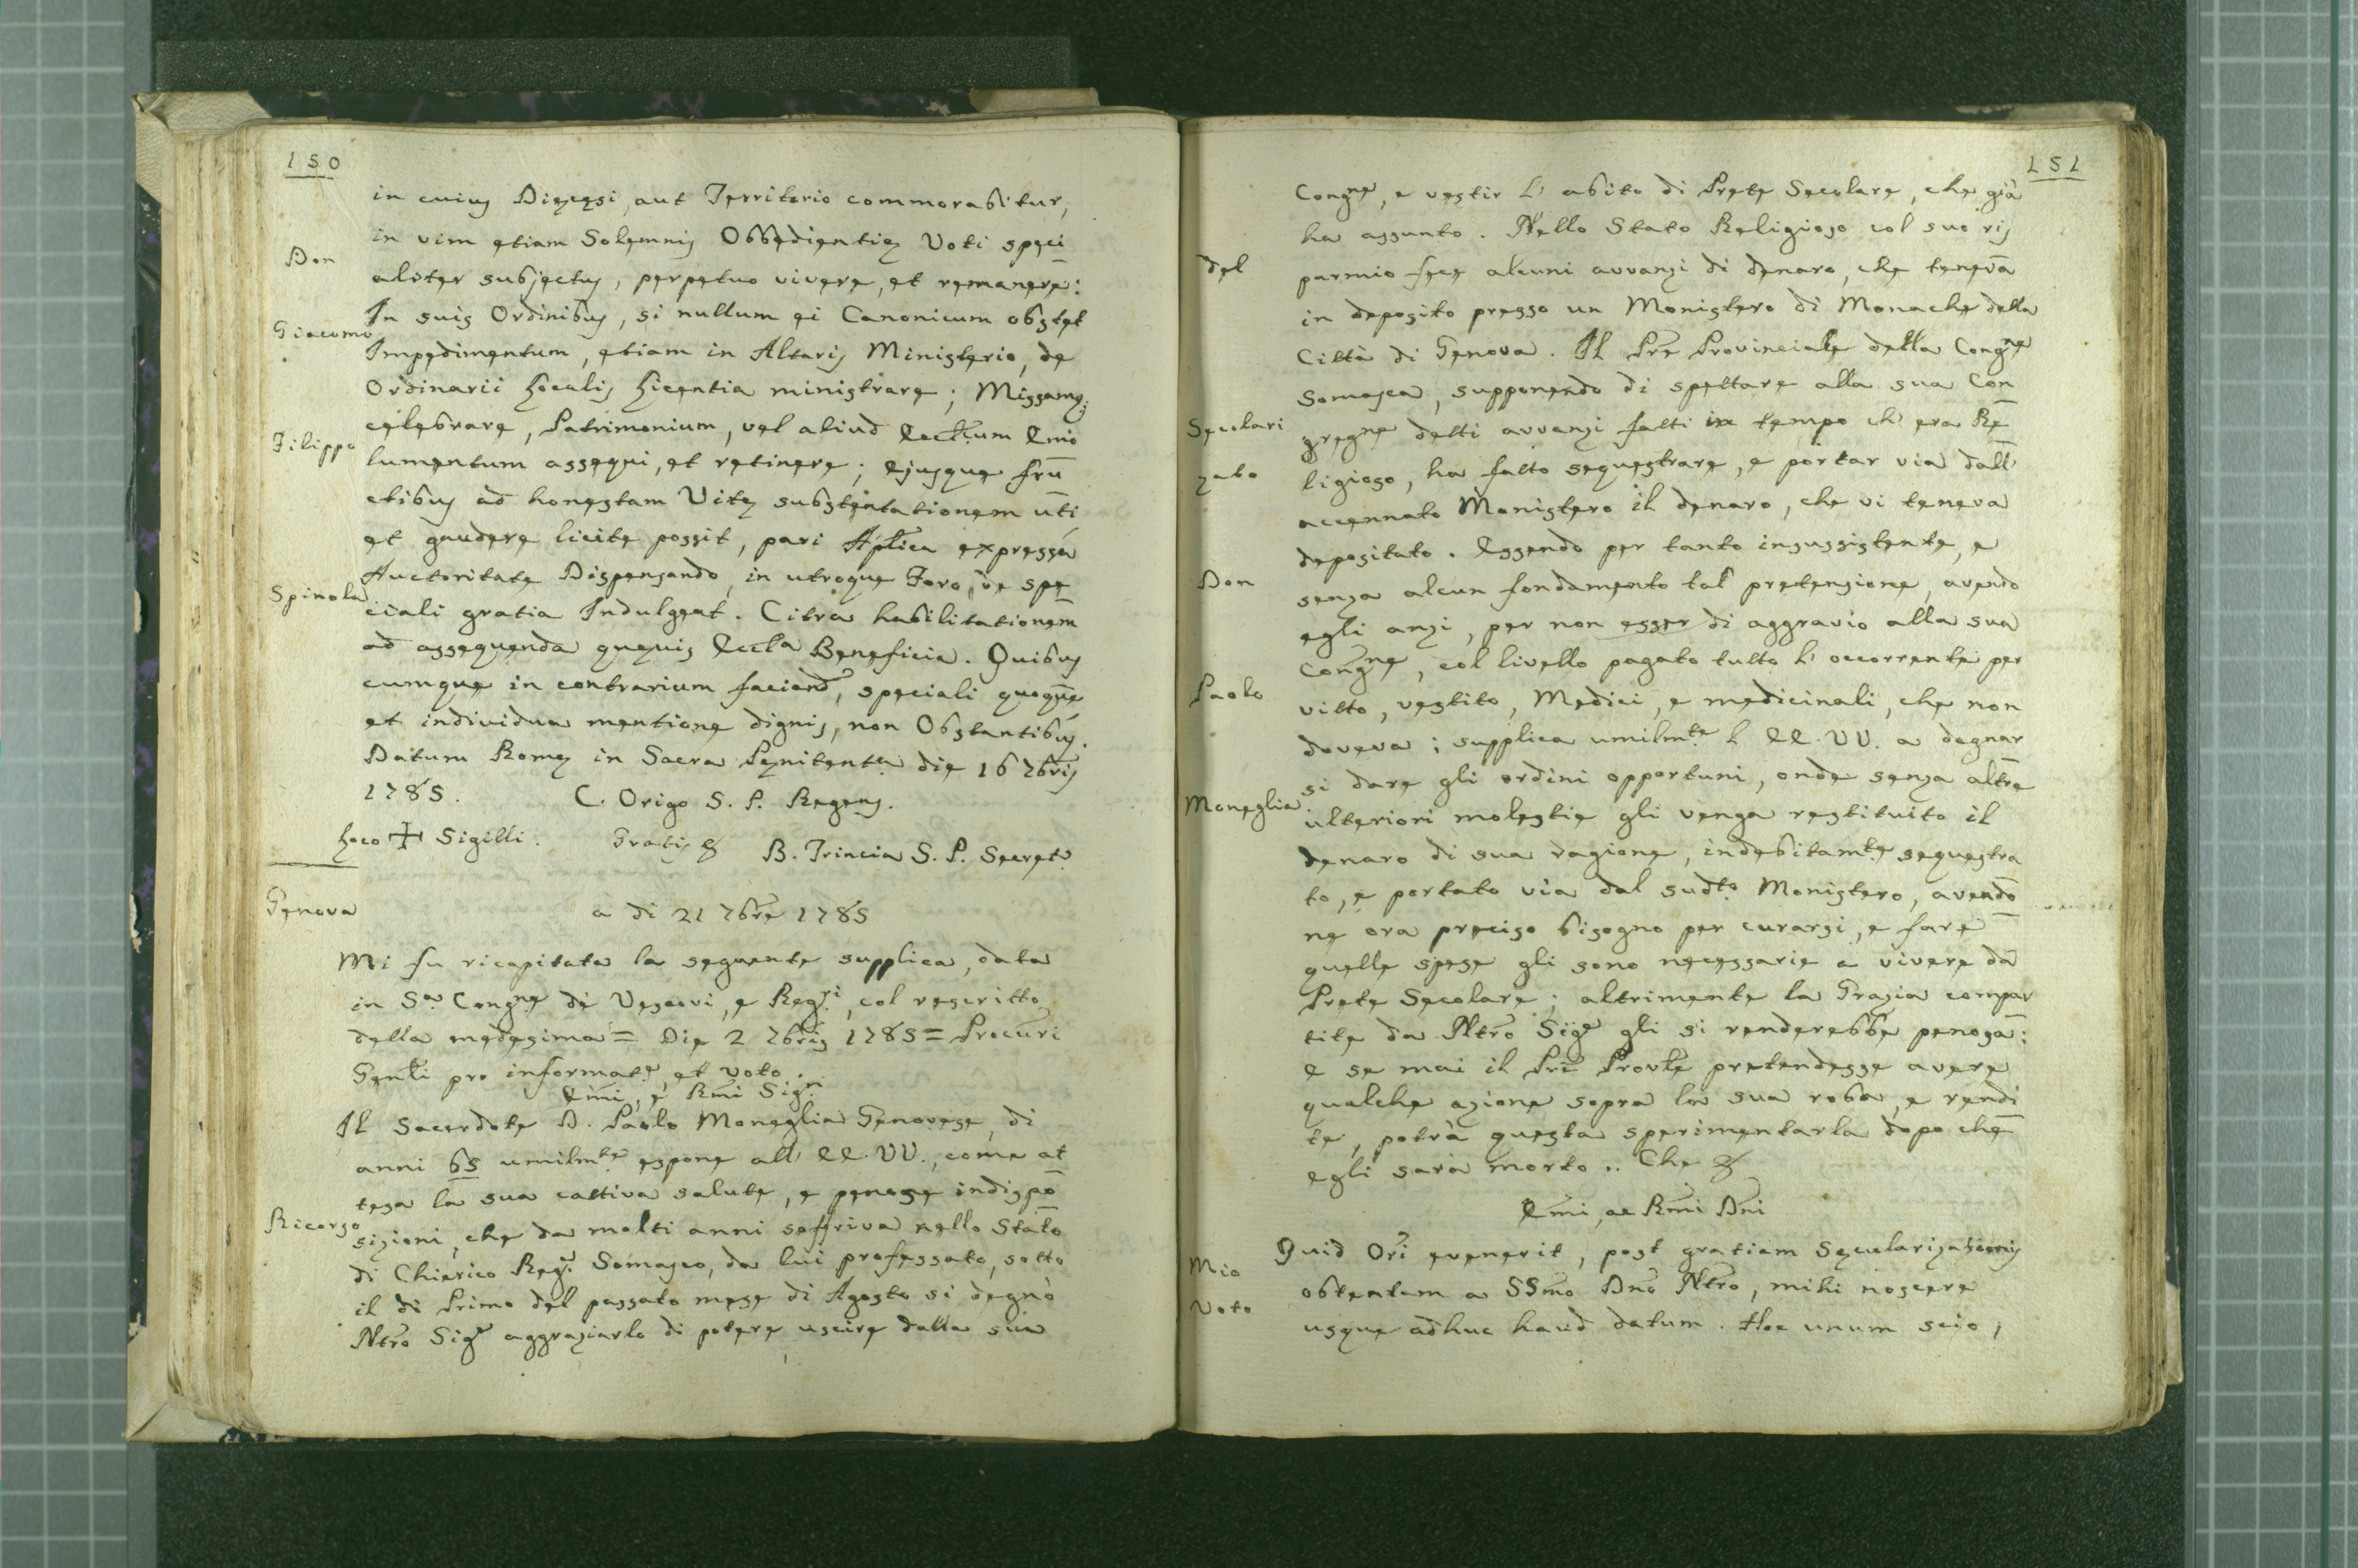 150
in cuius Dięcęsi, aut Territorio commorabitur,
in vim etiam Solemnis Obbedientię Voti speci
Don
aliter subjectus, perpetuo vivere, et remanere:
In suis Ordinibus, si nullum ei Canonicum obstet
Giacomo
Impedimentum, etiam in Altaris Ministerio, de
Ordinarii Localis Licentia ministrare; Missamq;
celebrare, Patrimonium, vel aliud Eccl.um Emo
Filippo
lumentum assequi, et retinere; Ejusque fru
ctibus ad honestam Vitę substentationem uti
et gaudere licite possit, pari Aplica expressa
Auctoritate Dispensando, in utroque Foro, de spe
Spinola
ciali gratia Indulgeat. Citra habilitationem
ad assequenda quęvis Eccl.a Beneficia. Quibus
cumque in contrarium faciend., speciali quoque
et individua mentione dignis, non Obstantibus.
Datum Romę in Sacra Pęnitent.a die 16 7bris
1785. C. Origo S. P. Regens.
Loco + Sigilli. Gratis & B. Trincia S. P. Secret.o
Genova
a di 21 7bre 1785
Mi fu ricapitata la seguente supplica, data
in S.a Congne de Vescovi, e Reg.ri, col rescritto
della medesima = Die 2 7bris 1785 = Procuri
Genli pro informat.e, et voto.
Emi, e Rmi Sig.ri
Il Sacerdote D. Paolo Moneglia Genovese, di
anni 65 umilmte espone all' EE. VV., come at
tesa la sua cattiva salute, e penose indispo
Ricorso
sizioni, che da molti anni soffriva nello Stato
di Chierico Reg.e Somasco, da lui professato, sotto
il di Primo del passato mese di Agosto si degnò
Ntro Sig.e aggraziarlo di potere uscire dalla sua
151
Congne, e vestir l' abito di Prete Secolare, che già
ha assunto. Nello Stato Religioso col suo ris
del
parmio fece alcuni avvanzi di denaro, che teneva
in deposito presso un Monistero di Monache della
Città di Genova. Il Pre Provinciale della Congne
Somasca, supponendo di spettare alla sua Con
Secolari
gregne detti avvanzi fatti in tempo ch' era Re
zato
ligioso, ha fatto sequestrare, e portar via dall'
accennato Monistero il denaro, che vi teneva
depositato. Essendo per tanto insussistente, e
Don
senza alcun fondamento tal pretenzione, avendo
egli anzi, per non esser di aggravio alla sua
Congne, col livello pagato tutto l' occorrente per
Paolo
vitto, vestito, Medici, e medicinali, che non
doveva; supplica umilmte l' EE. VV. a degnar
si dare gli ordini opportuni, onde senza altre
Moneglia
ulteriori molestie gli venga restituito il
denaro di sua ragione, indebitamte sequestra
to, e portato via dal sudto Monistero, avendo
ne ora preciso bisogno per curarsi, e fare
quelle spese gli sono necessarie a vivere da
Prete Secolare; altrimente la Grazia compar
tite da Ntro Sig.e gli si renderebbe penosa:
e se mai il Pre Provle pretendesse avere
qualche azione sopra la sua roba, e rendi
te, potrà questa sperimentarla dopo che
egli sarà morto.. Che &
Emi, ac Rmi Dni
Quid Ori evenerit, post gratiam Sęcularizationis
Mio
obtentam a SSmo Dno Ntro, mihi noscere
Voto
usque adhuc haud datum. Hoc unum scio,